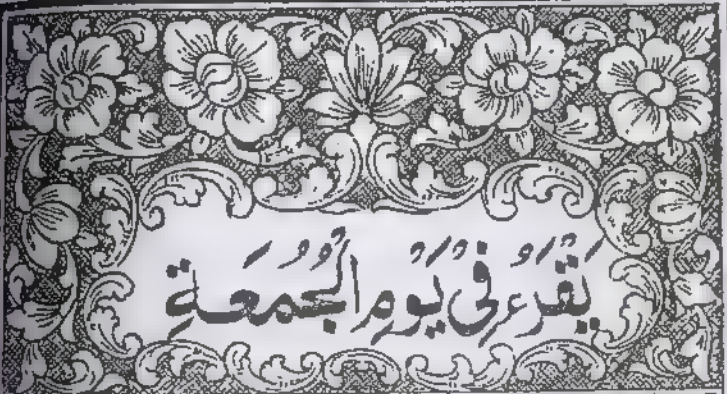 يَقْرَءُ فِى يَوْمِ الْجُمُعَةِ